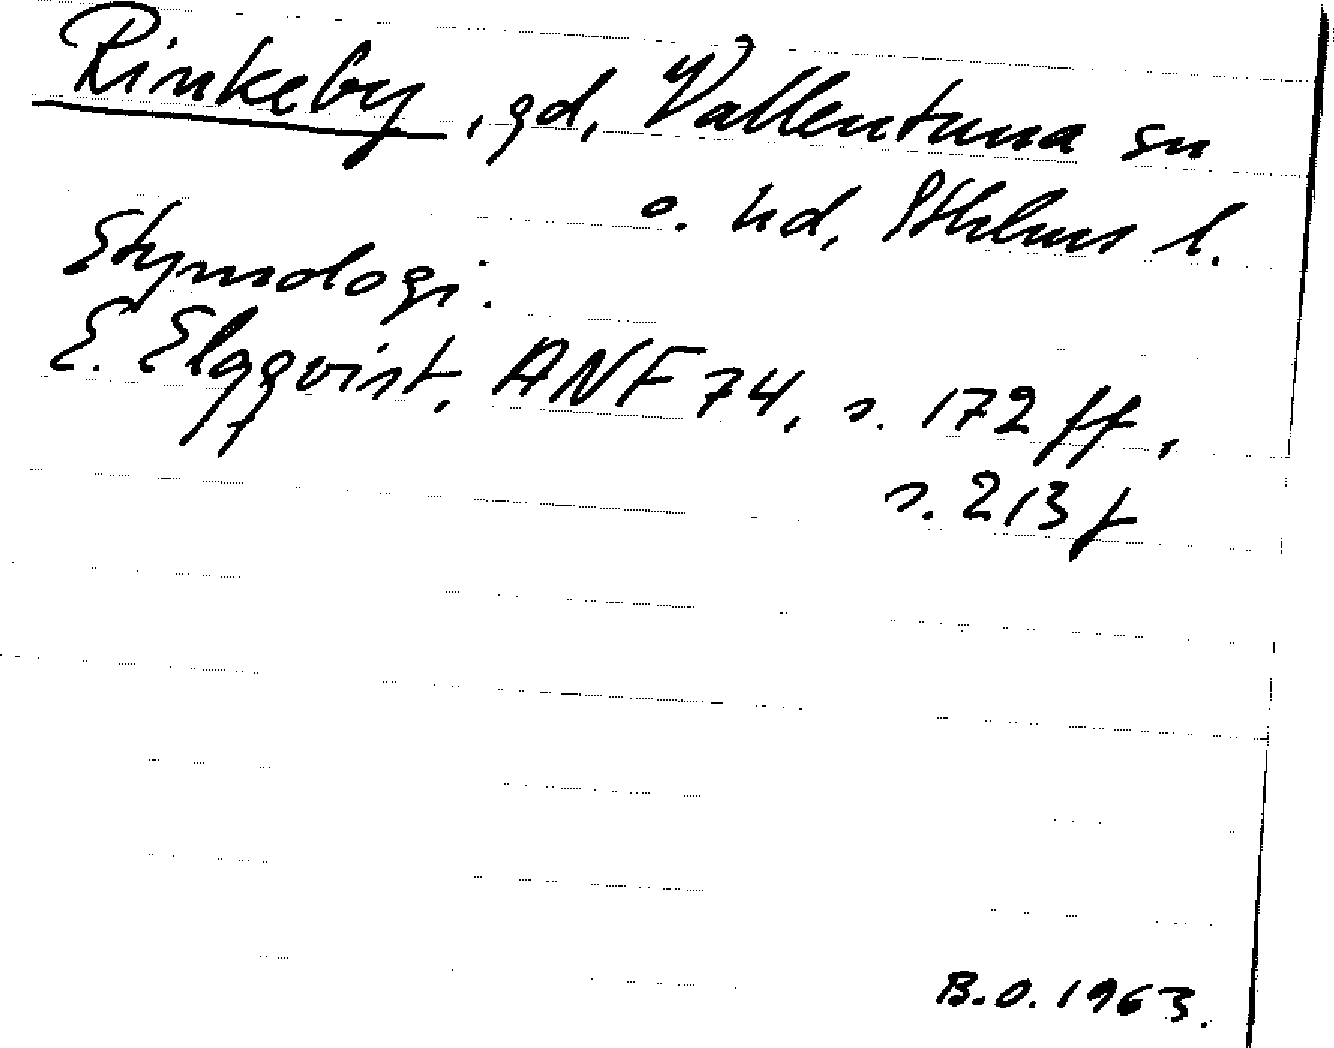 Rinkeby, gd, Vallentuna sn
o. hd, Sthlms l.
Etymologi:
E. Elgqvist, ANF 74, s. 172 ff,
s. 213 f
B.O. 1963.